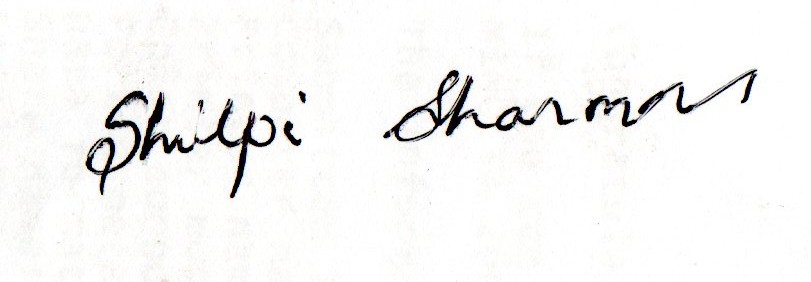 Shilpi Sharma